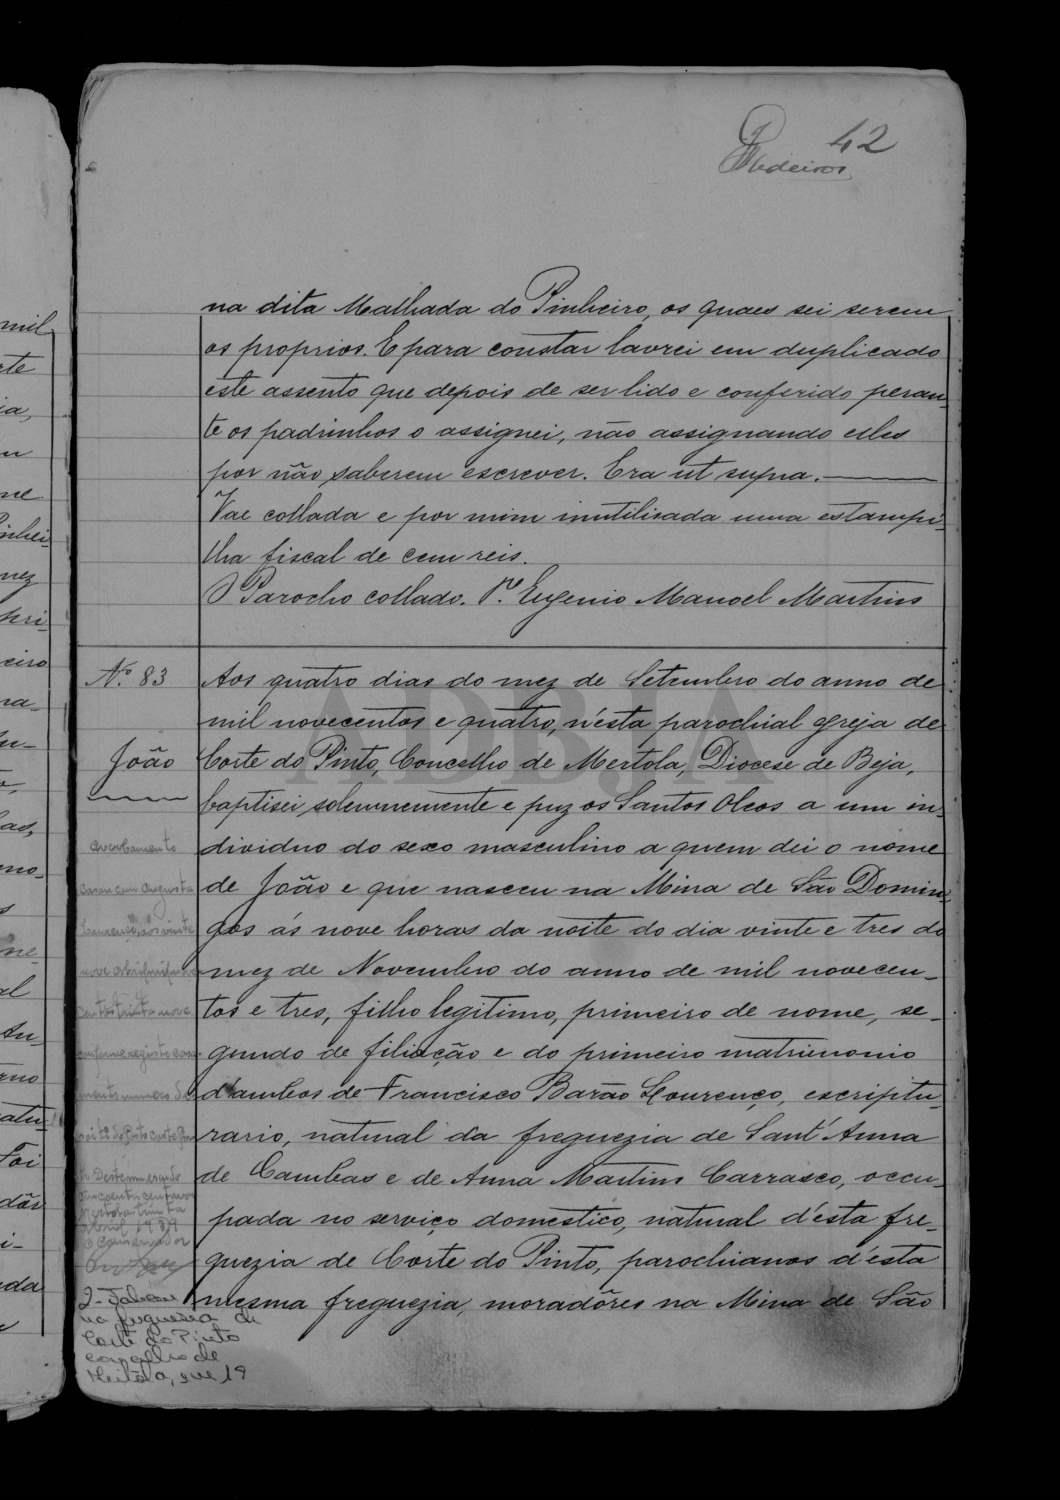 42
Medeiros
na dita Malhada do Pinheiro, os quaes sei serem
os proprios. E para constar lavrei em duplicado
este assento que depois de ser lido e conferido peran-
te os padrinhos o assignei, não assignando elles
por não saberem escrever. Era ut supra.
Vae collada e por mim inutilisada uma estampi-
lha fiscal de cem reis.
O Parocho collado. Pe. Eugenio Manoel Martins
Nº 83
João
Aos quatro dias do mez de Setembro do anno de
mil novecentos e quatro, n'esta parochial egreja de
Corte do Pinto, Concelho de Mertola, Diocese de Beja,
baptisei solemnemente e puz os Santos Oleos a um in-
dividuo do sexo masculino a quem dei o nome
de João e que nasceu na Mina de São Domin-
gos ás nove horas da noite do dia vinte e tres do
mez de Novembro do anno de mil novecen-
tos e tres, filho legitimo, primeiro de nome, se-
gundo de filiação e do primeiro matrimonio
d'ambos de Francisco Barão Lourenço, escriptu-
rario, natural da freguezia de Sant'Anna
de Cambas e de Anna Martins Carrasco, occu-
pada no serviço domestico, natural d'esta fre-
guezia de Corte do Pinto, parochianos d'esta
mesma freguezia, moradôres na Mina de São
Averbamento
Casou com Augusta
vinte
nove
conforme registo
Mertola trinta
Abril 1939
O Conservador
2-
na freguesia de
Corte do Pinto
concelho de
Mertola, em 19
mil
ADBJA